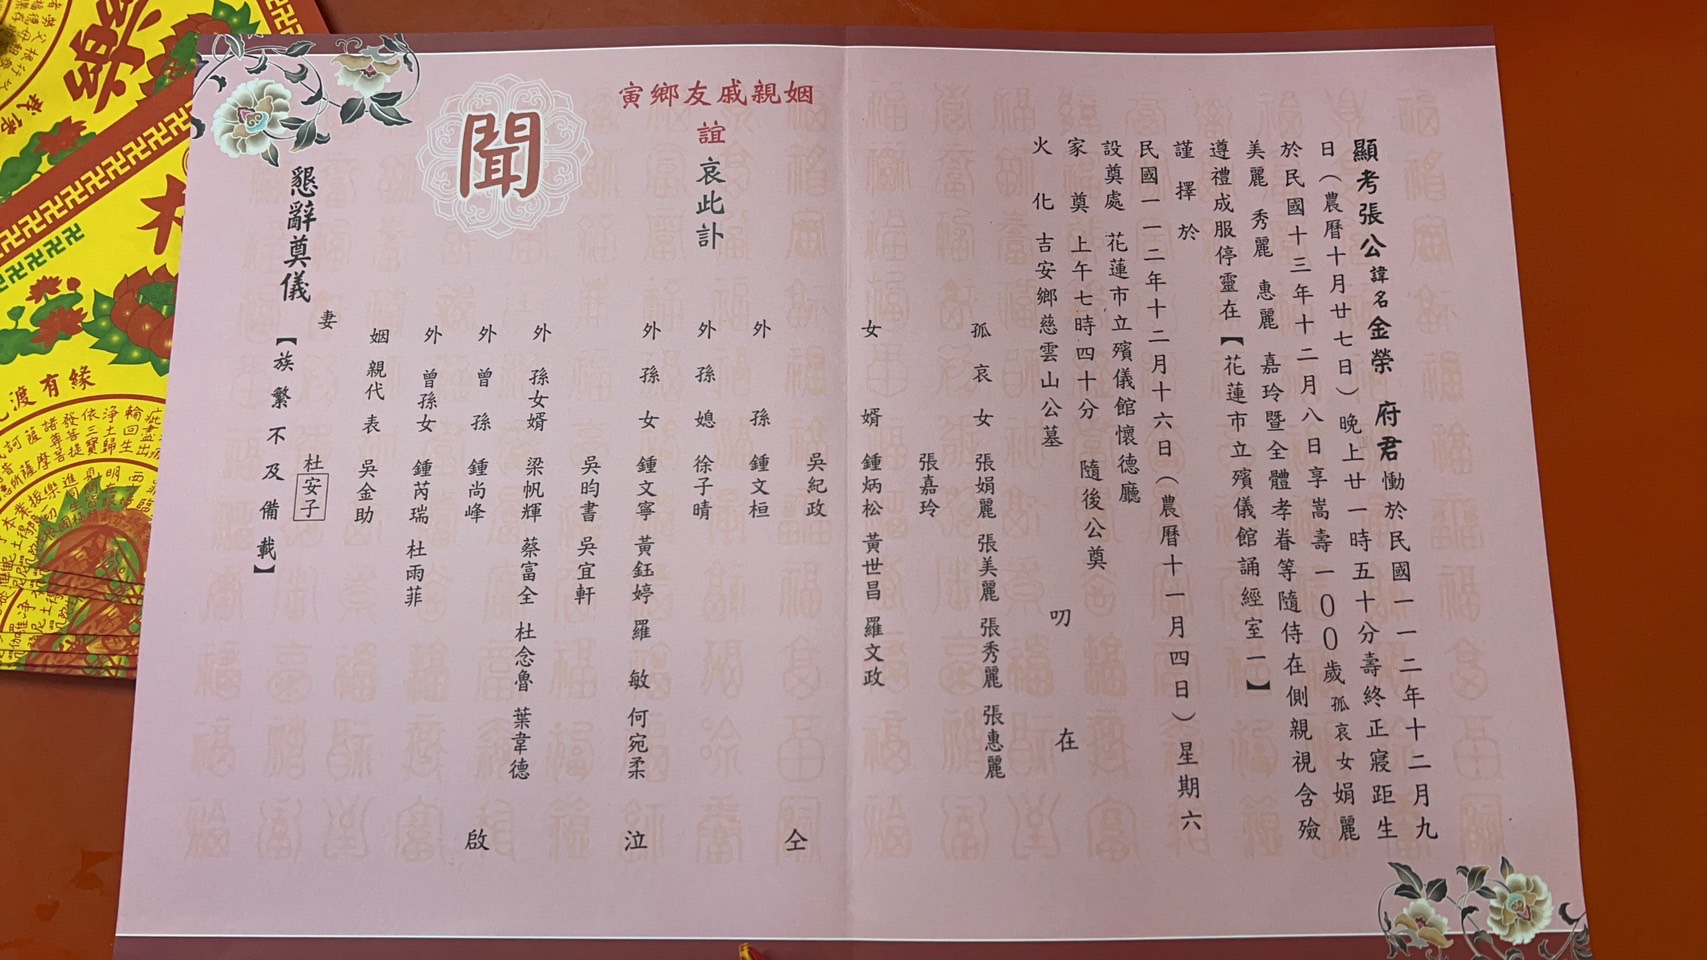 顯考張公諱名金榮 府君慟於民國一一二年十二月九
日(農曆十月廿七日)晚上廿一時五十分壽終正寢距生
於民國十三年十二月八日享嵩壽一00歲孤哀女娟麗
美麗 秀麗 惠麗 嘉玲暨全體孝眷等隨侍在側親視含殮
遵禮成服停靈在【花蓮市立殯儀館誦經室一】
謹擇於
民國一一二年十二月十六日(農曆十一月四日)星期六
設奠處 花蓮市立殯儀館懷德廳
家奠 上午七時四十分 隨後公奠
火化 吉安鄉慈雲山公墓
叨 在
姻親戚友鄉寅
誼哀此訃
聞
孤哀女 張娟麗 張美麗 張秀麗 張惠麗
張嘉玲
女婿 鍾炳松 黃世昌 羅文政
吳紀政
外孫 鍾文桓
外孫媳 徐子晴
外孫女 鍾文寧 黃鈺婷 羅敏 何宛柔
吳昀書 吳宜軒
外孫女婿 梁帆輝 蔡富全 杜念魯 葉韋德
外曾孫 鍾尚峰
外曾孫女 鍾芮瑞 杜雨菲
姻親代表 吳金助
妻 杜安子
仝 泣 啟
懇辭奠儀
【族繁不及備載】
渡有緣